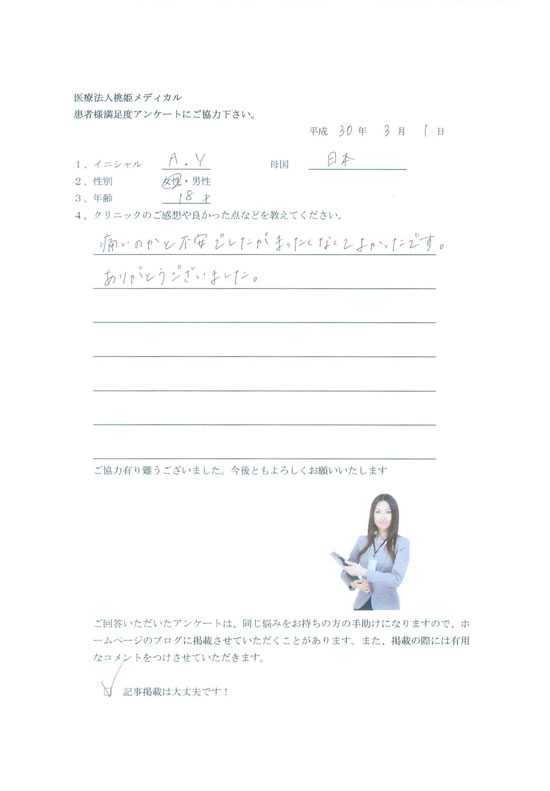 医療法人桃姫メディカル
患者様満足度アンケートにご協力下さい。
平成 30 年 3 月 1 日
1、イニシャル A.Y 母国 日本
2、性別 女性・男性
3、年齢 18才
4、クリニックのご感想や良かった点などを教えてください。
痛いのかと不安でしたがまったくなくてよかったです。
ありがとうございました。
ご協力有り難うございました。今後ともよろしくお願いいたします
ご回答いただいたアンケートは、同じ悩みをお持ちの方の手助けになりますので、ホ
ームページのブログに掲載させていただくことがあります。また、掲載の際には有用
なコメントをつけさせていただきます。
記事掲載は大丈夫です！